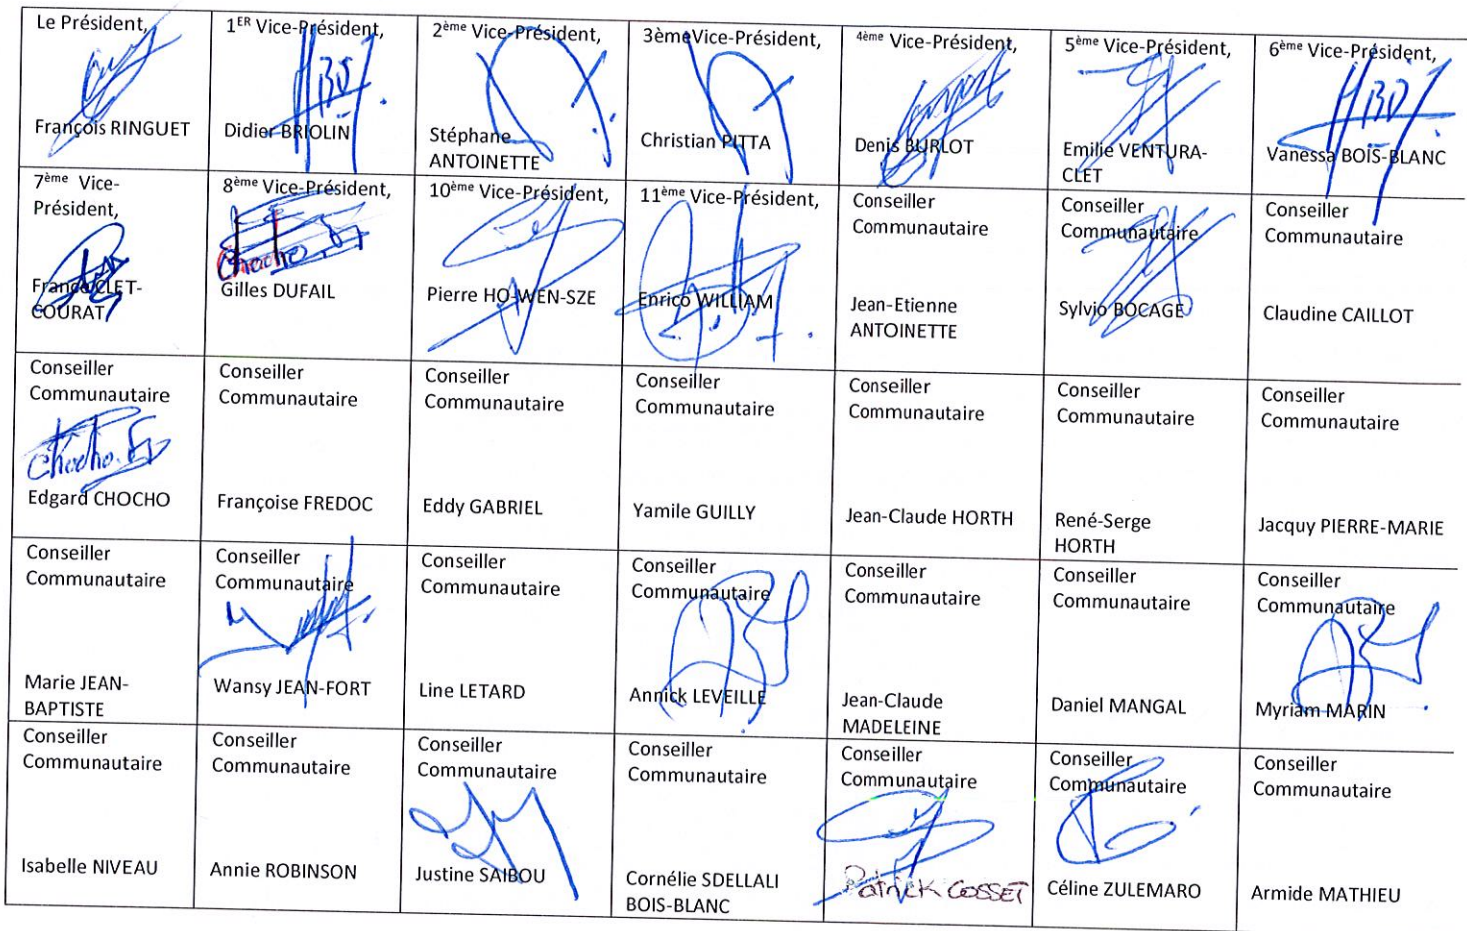 Le Président,
François RINGUET
1ER Vice-Président,
Didier BRIOLIN
2ème Vice-Président,
Stéphane
ANTOINETTE
3èmeVice-Président,
Christian PITTA
4ème Vice-Président,
Denis BURLOT
5ème Vice-Président,
Emilie VENTURA-
CLET
6ème Vice-Président,
Vanessa BOIS-BLANC
7ème Vice-
Président,
CLET-
COURAT
8ème Vice-Président,
Chocho
Gilles DUFAIL
10ème Vice-Président,
Pierre HO-WEN-SZE
11ème Vice-Président,
Enrico WILLIAM
Conseiller
Communautaire
Jean-Etienne
ANTOINETTE
Conseiller
Communautaire
Sylvio BOCAGE
Conseiller
Communautaire
Claudine CAILLOT
Conseiller
Communautaire
Chocho
Edgard CHOCHO
Conseiller
Communautaire
Françoise FREDOC
Conseiller
Communautaire
Eddy GABRIEL
Conseiller
Communautaire
Yamile GUILLY
Conseiller
Communautaire
Jean-Claude HORTH
Conseiller
Communautaire
René-Serge
HORTH
Conseiller
Communautaire
Jacquy PIERRE-MARIE
Conseiller
Communautaire
Marie JEAN-
BAPTISTE
Conseiller
Communautaire
Wansy JEAN-FORT
Conseiller
Communautaire
Line LETARD
Conseiller
Communautaire
Annick LEVEILLE
Conseiller
Communautaire
Jean-Claude
MADELEINE
Conseiller
Communautaire
Daniel MANGAL
Conseiller
Communautaire
Myriam MARIN
Conseiller
Communautaire
Isabelle NIVEAU
Conseiller
Communautaire
Annie ROBINSON
Conseiller
Communautaire
Justine SAIBOU
Conseiller
Communautaire
Cornélie SDELLALI
BOIS-BLANC
Conseiller
Communautaire
Patrick COSSET
Conseiller
Communautaire
Céline ZULEMARO
Conseiller
Communautaire
Armide MATHIEU